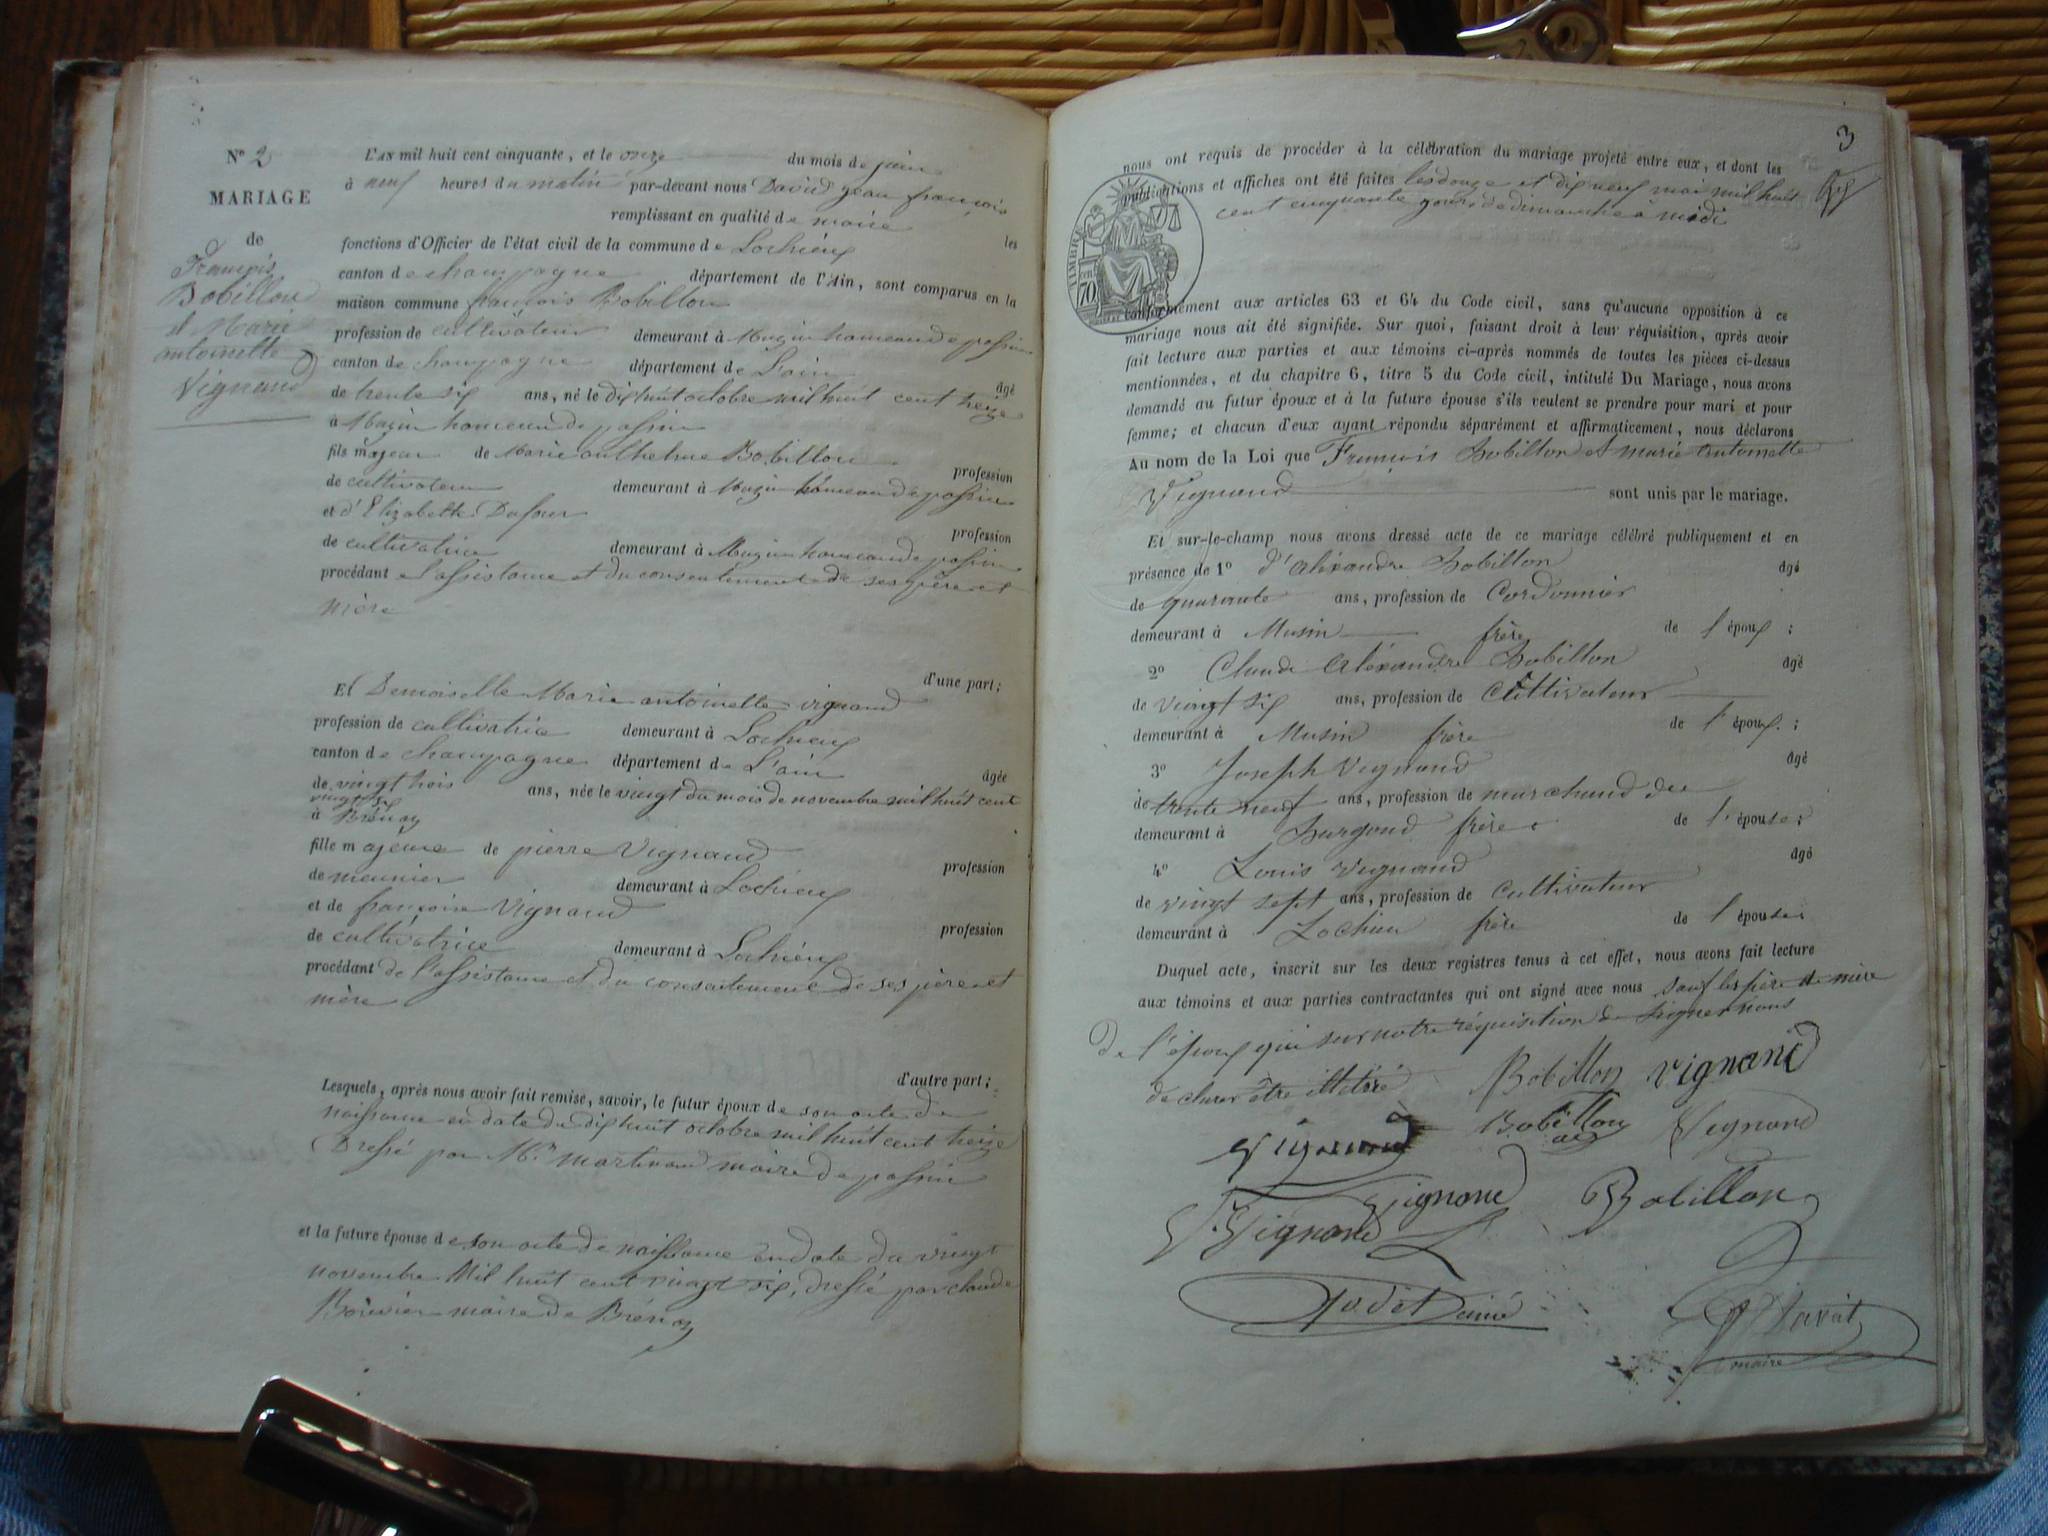 No 2
MARIAGE
de
François
Bobillon
et Marie
antoinette
Vignand
L'AN mil huit cent cinquante, et le onze du mois de juin
à neuf heures du matin par-devant nous David jean françois
remplissant en qualité de maire les
fonctions d'Officier de l'état civil de la commune de Lochieux
canton de champagne département de l'Ain, sont comparus en la
maison commune françois Bobillon
profession de cultivateur demeurant à Muzin hameau de passin
canton de champagne département de L'ain âgé
de trente six ans, né le dix huit octobre mil huit cent treize
à Muzin hameau de passin
fils majeur de Marie anthelme Bobillon profession
de cultivateur demeurant à Muzin hameau de passin
et d'Elizabeth Dufour profession
de cultivatrice demeurant à Muzin hameau de passin
procédant de l'assistance et du consentement de ses père et
mère
d'une part;
Et Demoiselle Marie antoinette vignand
profession de cultivatrice demeurant à Lochieux
canton de champagne département de L'ain âgée
de vingt trois ans, née le vingt du mois de novembre mil huit cent
vingt six
à Brénaz
fille majeure de pierre Vignand profession
de meunier demeurant à Lochieux
et de françoise Vignand profession
de cultivatrice demeurant à Lochieux
procédant de l'assistance et du consentement de ses père et
mère
d'autre part;
Lesquels, après nous avoir fait remise, savoir, le futur époux de son acte de
naissance en date du dix huit octobre mil huit cent treize
Dressé par Mr martinand maire de passin
et la future épouse de son acte de naissance en date du vingt
novembre Mil huit cent vingt six, dressé par claude
Bouvier maire de Brénaz
3
nous ont requis de procéder à la célébration du mariage projeté entre eux, et dont les
publications et affiches ont été faites les douze et dix neuf mai mil huit
cent cinquante jours de dimanche à midi
TIMBRE
70 cent
conformément aux articles 63 et 64 du Code civil, sans qu'aucune opposition à ce
mariage nous ait été signifiée. Sur quoi, faisant droit à leur réquisition, après avoir
fait lecture aux parties et aux témoins ci-après nommés de toutes les pièces ci-dessus
mentionnées, et du chapitre 6, titre 5 du Code civil, intitulé Du Mariage, nous avons
demandé au futur époux et à la future épouse s'ils veulent se prendre pour mari et pour
femme; et chacun d'eux ayant répondu séparément et affirmativement, nous déclarons
Au nom de la Loi que François Bobillon et marie antoinette
Vignand sont unis par le mariage.
Et sur-le-champ nous avons dressé acte de ce mariage célébré publiquement et en
présence de 1° d'aléxandre Bobillon âgé
de quarante ans, profession de Cordonnier
demeurant à Musin frère de l'époux;
2° Claude aléxandre Bobillon âgé
de vingt six ans, profession de Cultivateur
demeurant à Musin frère de l'époux;
3° Joseph Vignand âgé
de trente neuf ans, profession de marchand de
demeurant à frère de l'épouse;
4° Louis Vignand âgé
de vingt sept ans, profession de Cultivateur
demeurant à Lochieu frère de l'épouse
Duquel acte, inscrit sur les deux registres tenus à cet effet, nous avons fait lecture
aux témoins et aux parties contractantes qui ont signé avec nous sauf les père et mère
de l'époux qui sur notre réquisition de signer nous
declarer être illétéré Bobillon Vignand
Vignand Bobillon Vignand
Vignand Bobillon
J. Vignand
David
maire